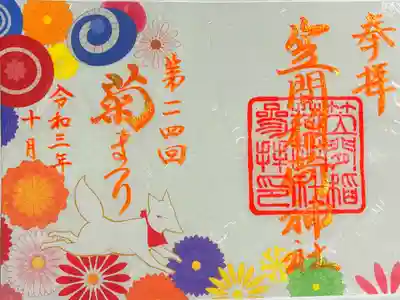 奉拝
笠間稲荷神社
第一一四回
菊まつり
令和三年
十月